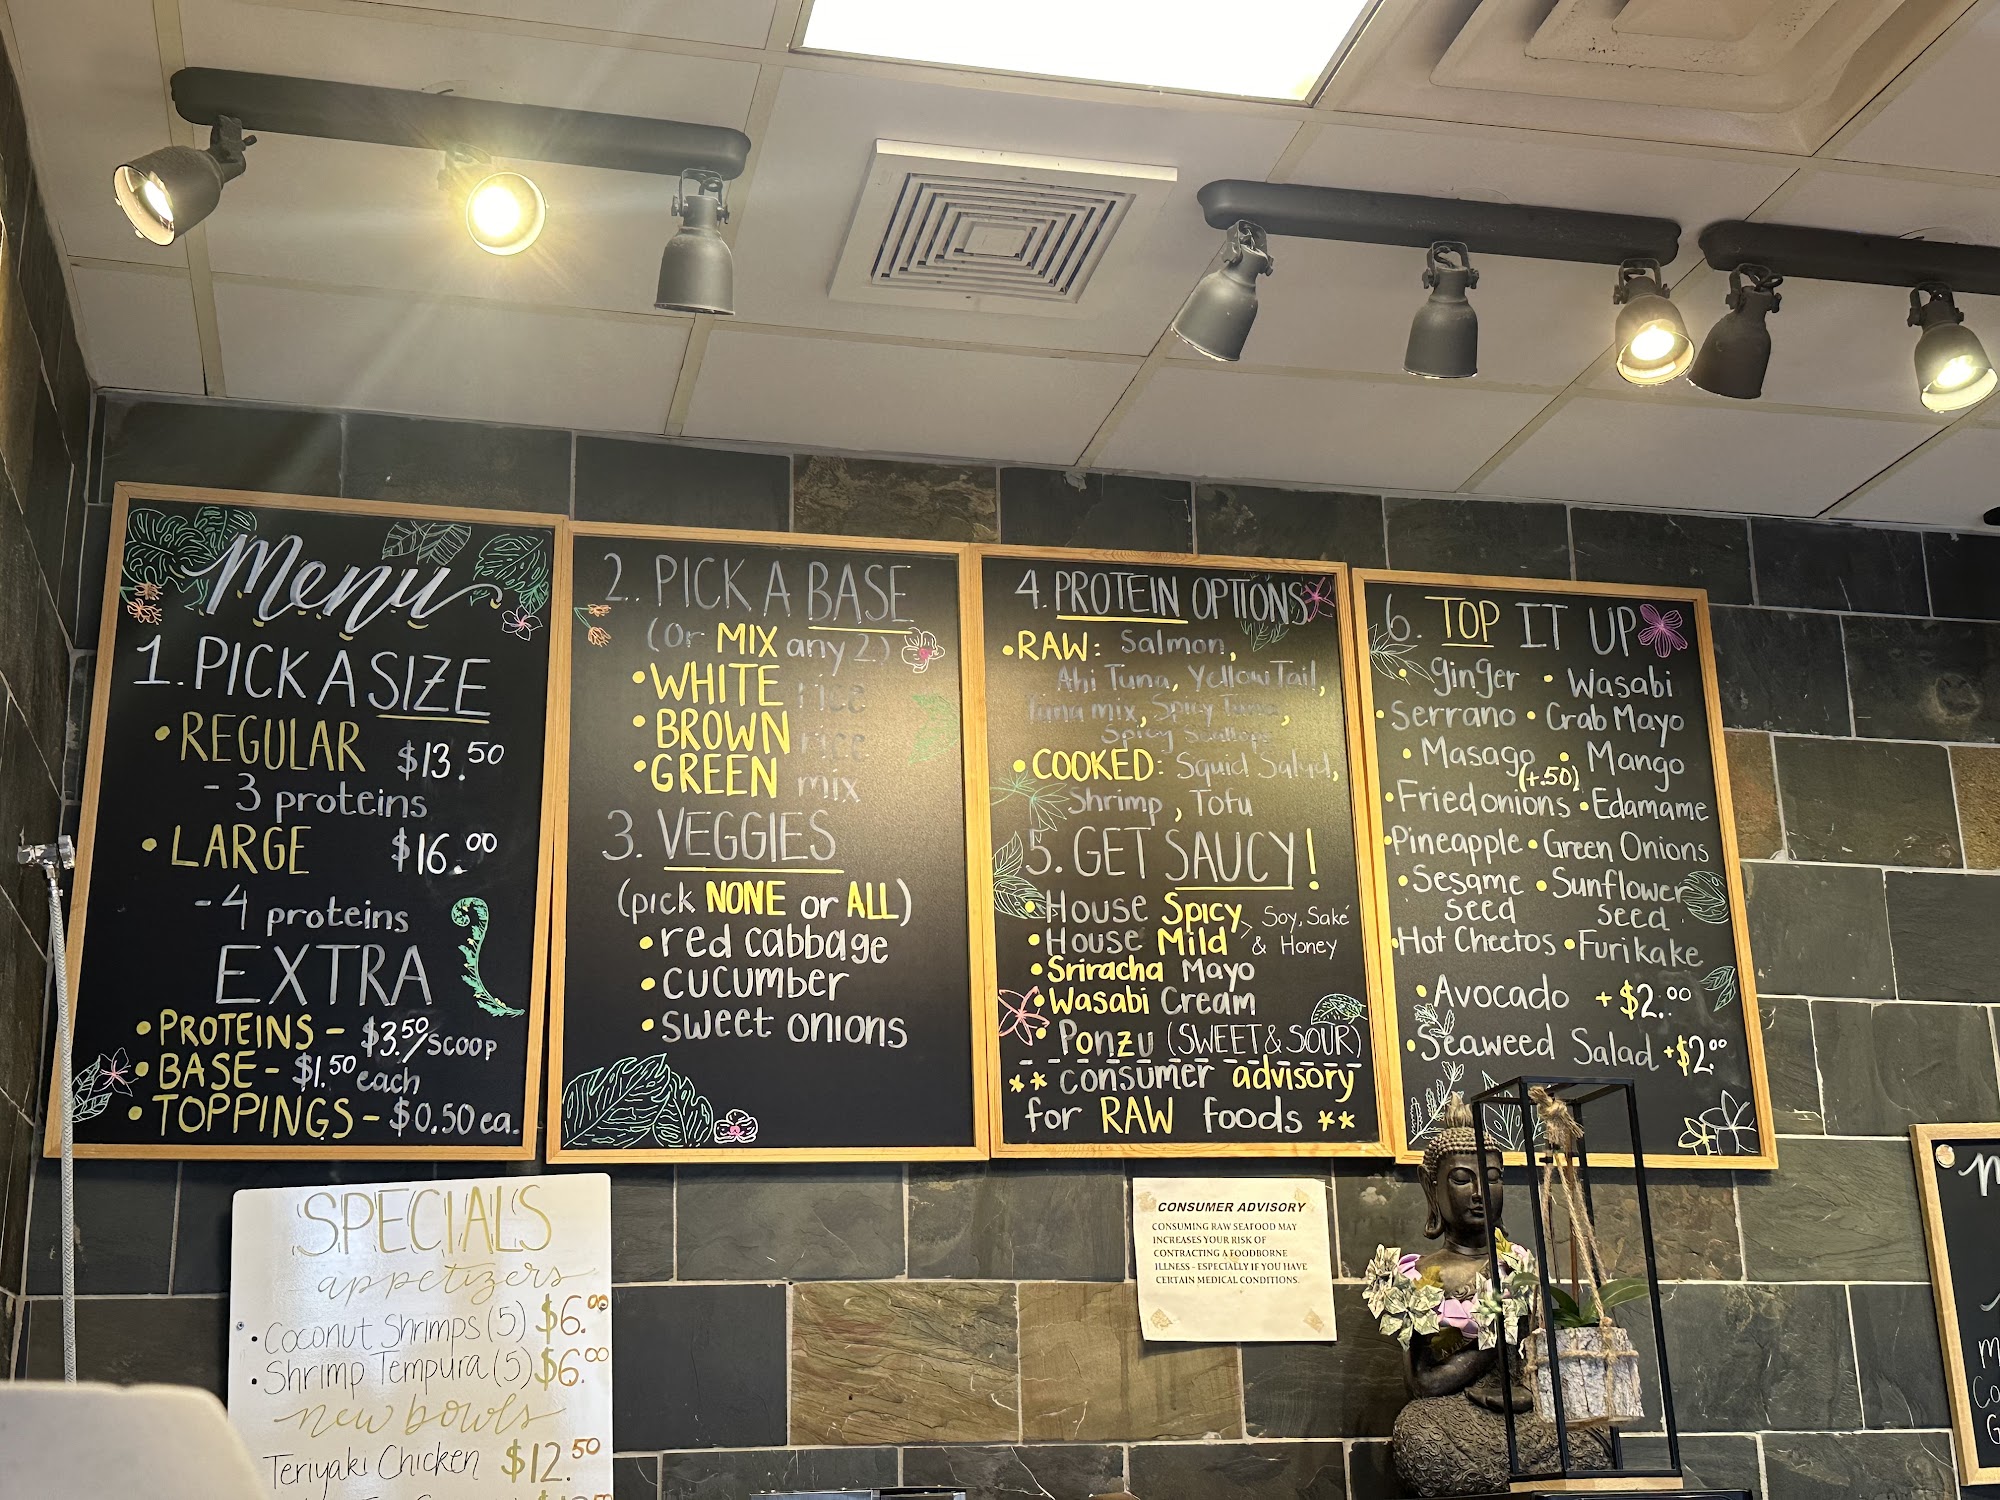 Menu
1. PICK A SIZE
• REGULAR $13.50
- 3 proteins
• LARGE $16.00
- 4 proteins
EXTRA
• PROTEINS - $3.50/SCOOP
• BASE - $1.50 each
• TOPPINGS - $0.50 ea.
2. PICK A BASE
(Or MIX any 2.)
• WHITE rice
• BROWN rice
• GREEN mix
3. VEGGIES
(pick NONE or ALL)
• red cabbage
• cucumber
• sweet onions
4. PROTEIN OPTIONS
• RAW: Salmon,
Ahi Tuna, Yellow Tail,
Tuna mix, Spicy Tuna,
Spicy Scallops
• COOKED: Squid Salad,
Shrimp, Tofu
5. GET SAUCY!
• House Spicy > Soy, Saké
• House Mild & Honey
• Sriracha Mayo
• Wasabi Cream
• Ponzu (SWEET & SOUR)
** consumer advisory
for RAW foods **
6. TOP IT UP
• ginger • Wasabi
• Serrano • Crab Mayo
• Masago • Mango
(+.50)
• Fried onions • Edamame
• Pineapple • Green Onions
• Sesame • Sunflower
seed seed
• Hot Cheetos • Furikake
• Avocado + $2.00
• Seaweed Salad + $2.00
SPECIALS
appetizers
• Coconut Shrimps (5) $6.00
• Shrimp Tempura (5) $6.00
new bowls
Teriyaki Chicken $12.50
CONSUMER ADVISORY
CONSUMING RAW SEAFOOD MAY
INCREASES YOUR RISK OF
CONTRACTING A FOODBORNE
ILLNESS - ESPECIALLY IF YOU HAVE
CERTAIN MEDICAL CONDITIONS.